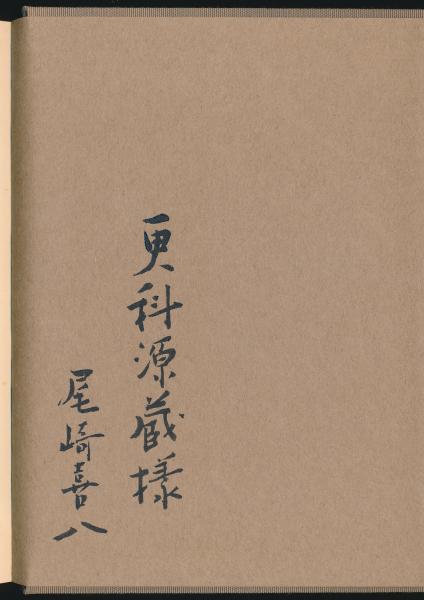 更科源蔵様
尾崎喜八